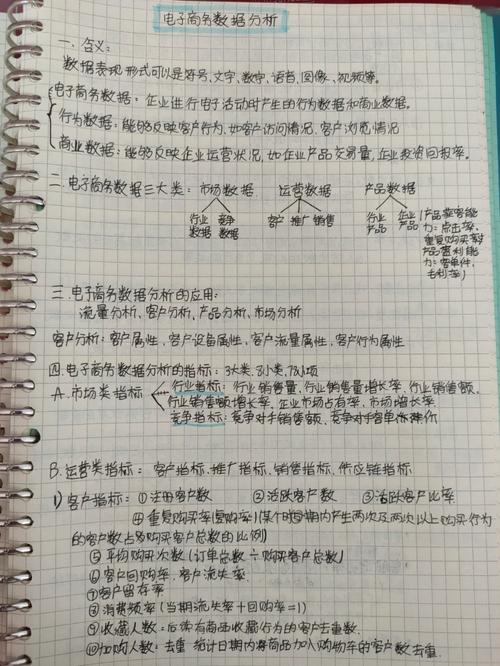 电子商务数据分析
一、含义:
数据表现形式可以是符号、文字、数字、语音、图像、视频等。
电子商务数据:企业进行电子活动时产生的行为数据和商业数据。
行为数据:能够反映客户行为,如客户访问情况、客户浏览情况
商业数据:能够反映企业运营状况,如企业产品交易量,企业投资回报率。
二、电子商务数据三大类:市场数据 运营数据 产品数据
行业数据 竞争数据 客户 推广 销售 行业产品 企业产品
(产品获客能力:点击率,重复购买率
产品盈利能力:客单件,毛利率)
三、电子商务数据分析的应用:
流量分析、客户分析、产品分析、市场分析
客户分析:客户属性,客户设备属性,客户流量属性,客户行为属性
四、电子商务数据分析的指标:3大类,8小类,
A.市场类指标
行业指标:行业销售量,行业销售量增长率,行业销售额,
行业销售额增长率,企业市场占有率,市场增长率
竞争指标:竞争对手销售额,竞争对手客单价
B.运营类指标:客户指标,推广指标,销售指标,供应链指标
1)客户指标:①注册客户数 ②活跃客户数 ③活跃客户比率
④重复购买率(复购率)(某个时期内产生两次及两次以上购买行为
的客户数占购买客户总数的比例)
⑤平均购买次数(订单总数÷购买客户总数)
⑥客户回购率、客户流失率
⑦客户留存率
⑧消费频率(当期流失率+回购率=1)
⑨收藏人数:后有商品收藏行为的客户去重数
⑩加购人数:去重 统计日期内将商品加入购物车的客户数去重.